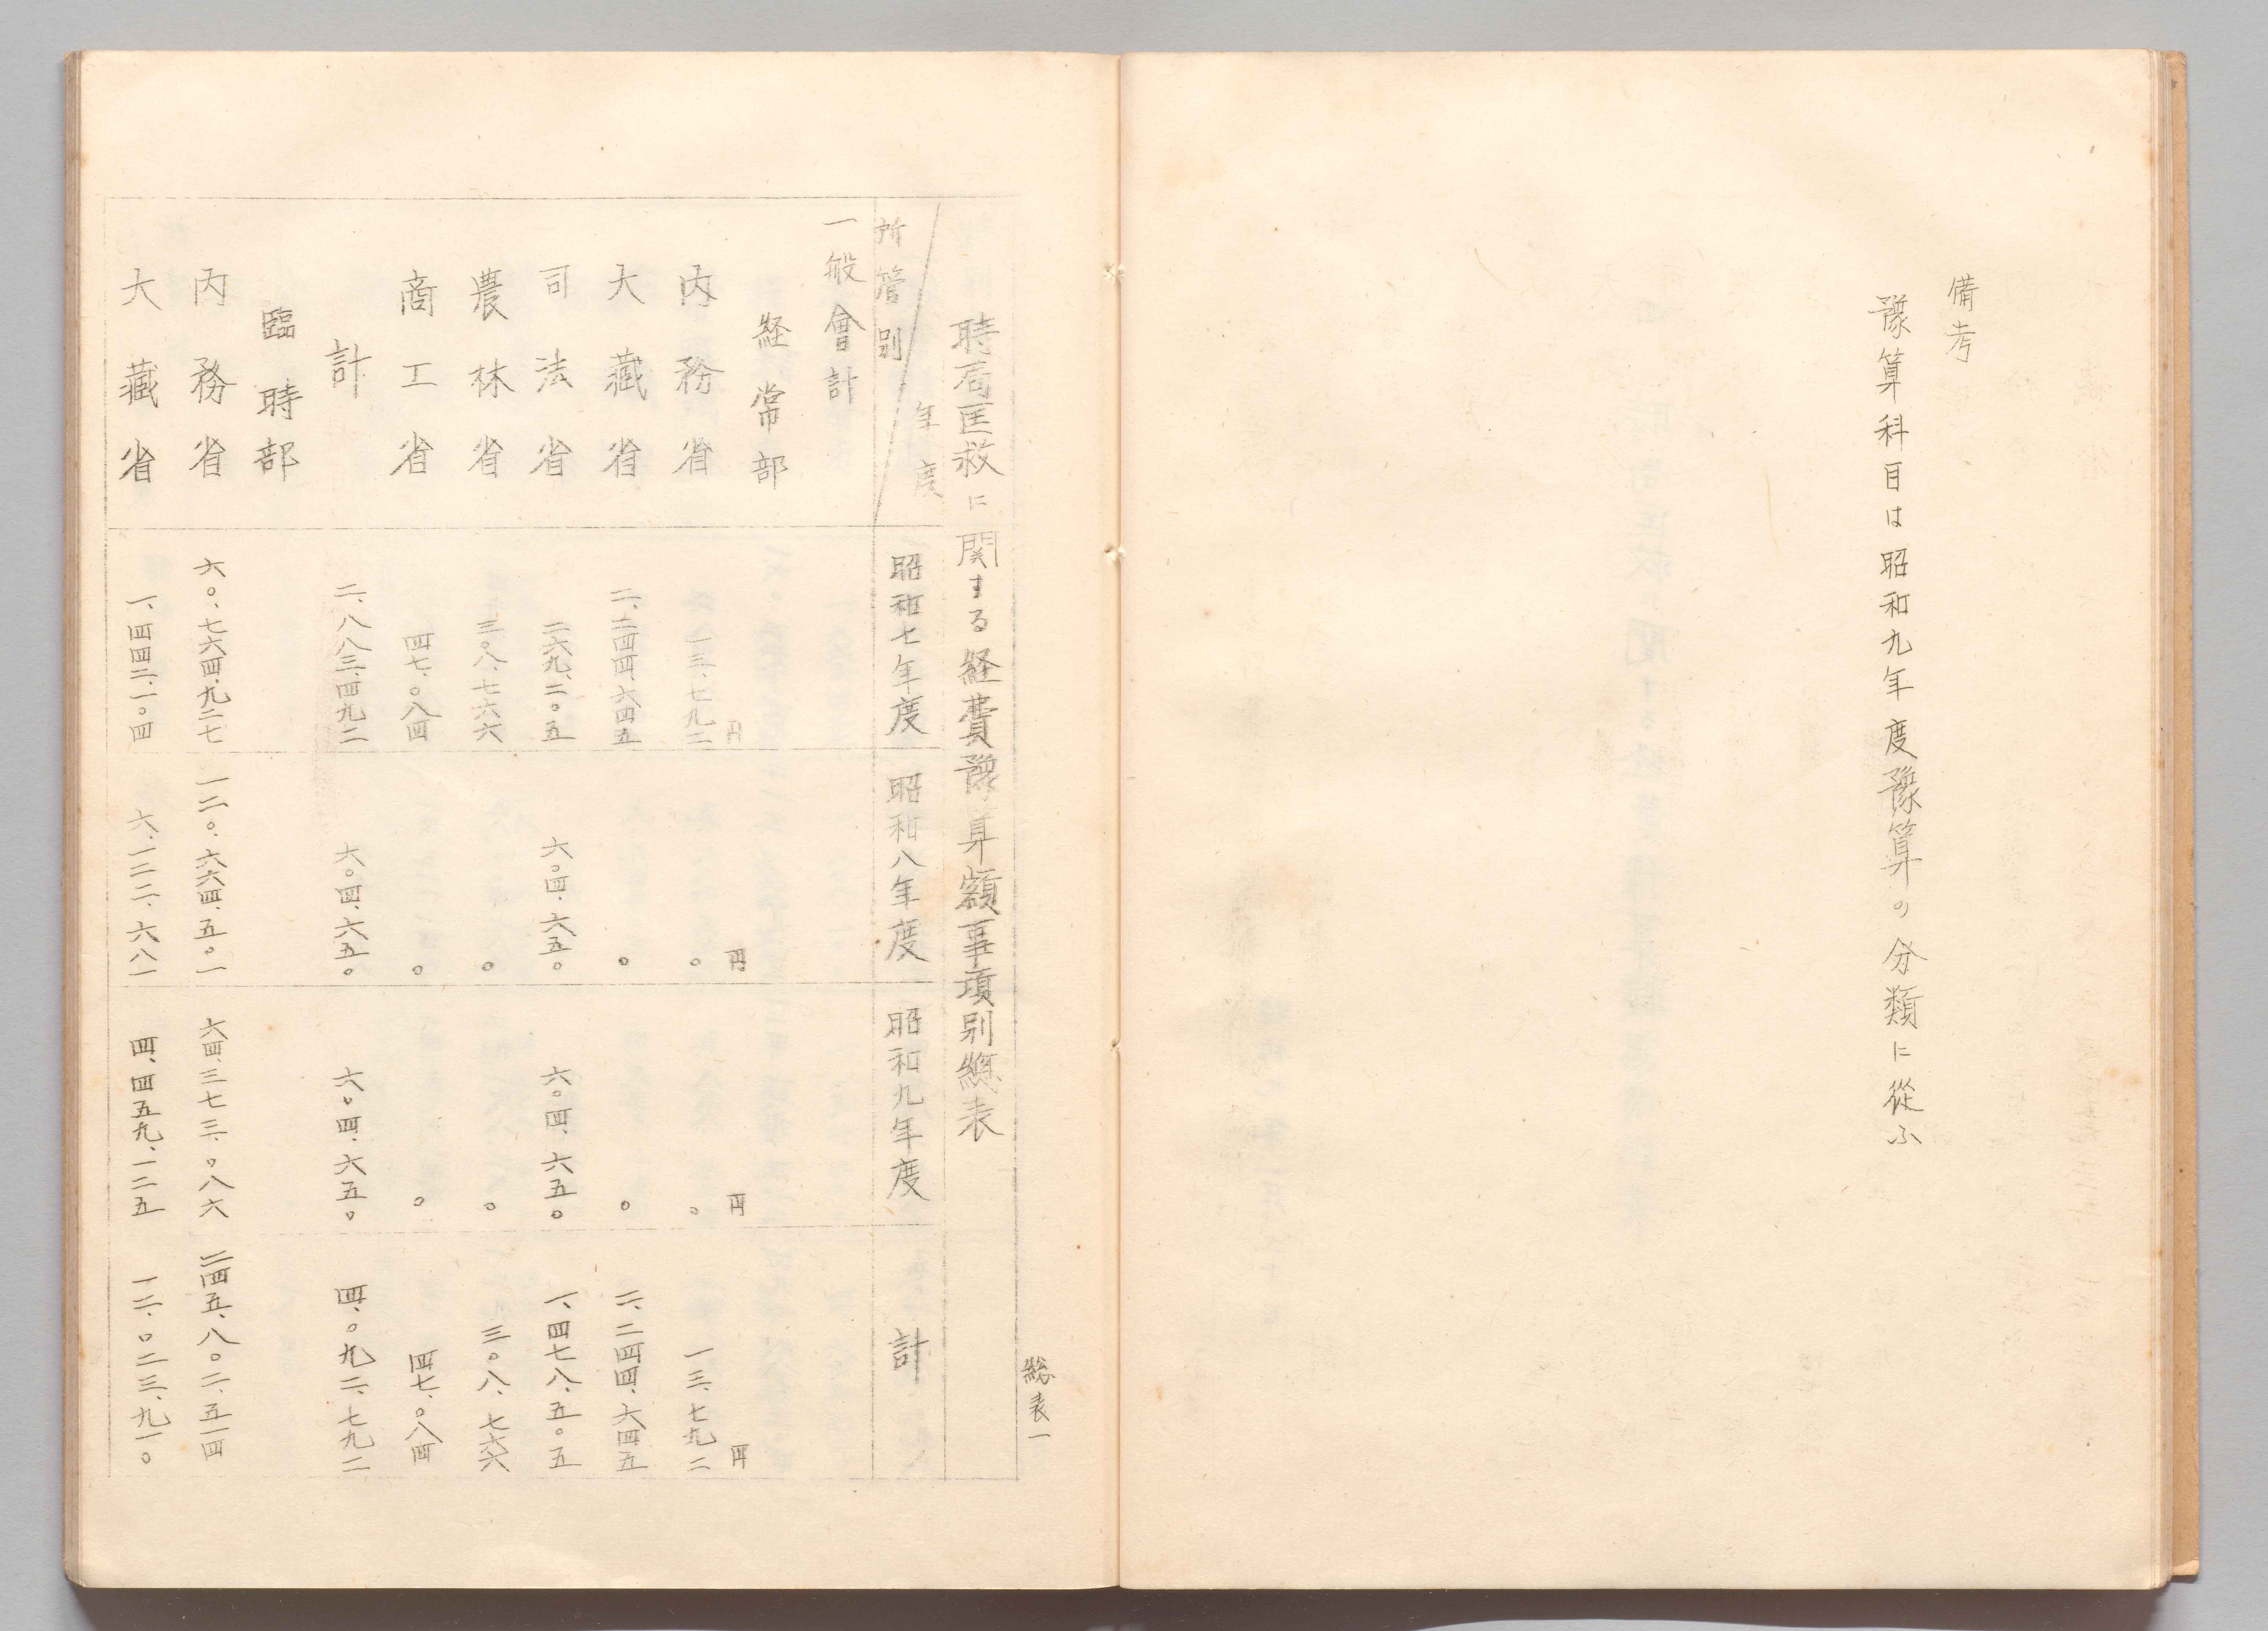 備考
豫算科目は昭和九年度豫算の分類に從ふ
総表一
時局匡救に関する経費豫算額事項別總表
所管別 年度 昭和七年度 昭和八年度 昭和九年度 計
一般會計
経常部 円 円 円 円
内務省 一三、七九二 〇 〇 一三、七九二
大藏省 二、二四四、六四五 〇 〇 二、二四四、六四五
司法省 二六九、二〇五 六〇四、六五〇 六〇四、六五〇 一、四七八、五〇五
農林省 三〇八、七六六 〇 〇 三〇八、七六六
商工省 四七、〇八四 〇 〇 四七、〇八四
計 二、八八三、四九二 六〇四、六五〇 六〇四、六五〇 四、〇九二、七九二
臨時部
内務省 六〇、七六四、九二七 一二〇、六六四、五〇一 六四、三七三、〇八六 二四五、八〇二、五一四
大藏省 一、四四二、一〇四 六、一二二、六八一 四、四五九、一二五 一二、〇二三、九一〇